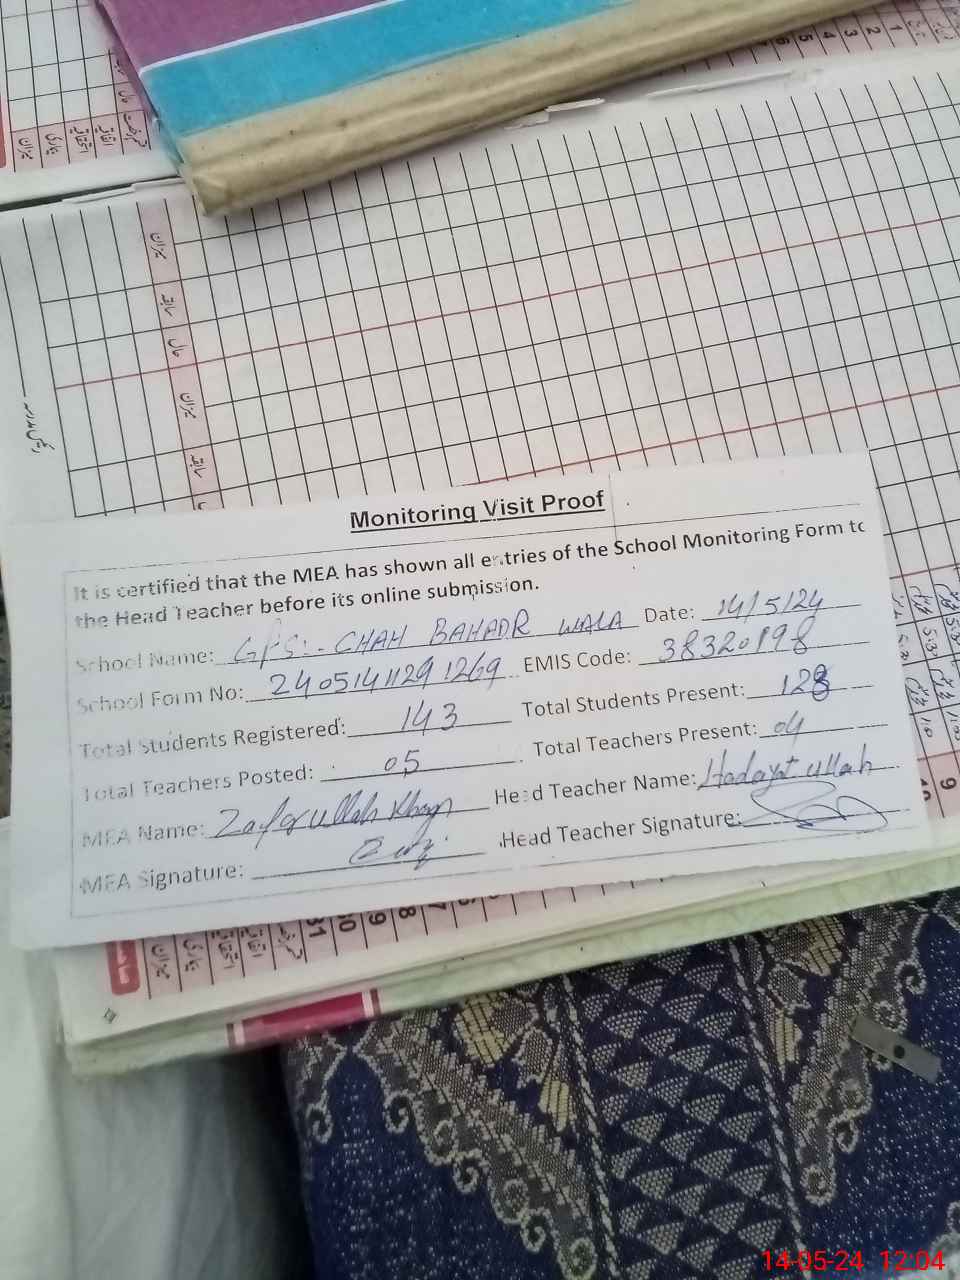 1 2 3 4 5 6
میزان
سابقہ
حال
میزان
سابقہ
Monitoring Visit Proof
It is certified that the MEA has shown all entries of the School Monitoring Form to
the Head Teacher before its online submission.
School Name: GPS:. CHAH BAHADR WALA Date: 14/5/24
School Form No: 24051411291269 EMIS Code: 38320198
Total Students Registered: 143 Total Students Present: 128
Total Teachers Posted: 05 Total Teachers Present: 04
MEA Name: Zafarullah Khan Head Teacher Name: Hadayat ullah
MEA Signature: Head Teacher Signature:
31 30 9 8 7
9
14-05-24 12:04